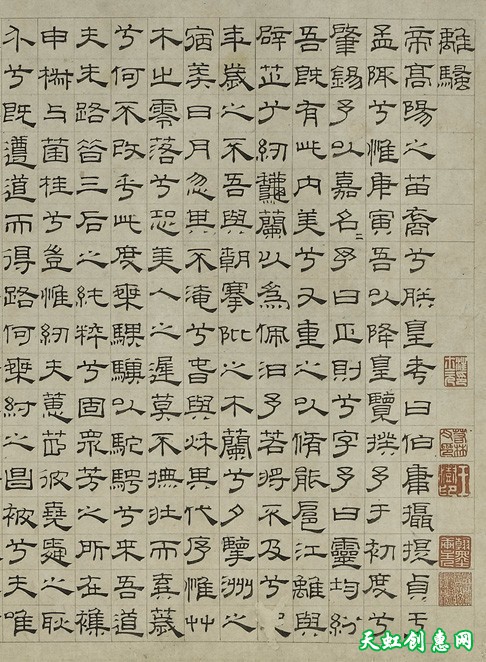 離騷
帝高陽之苗裔兮朕皇考曰伯庸攝提貞于
孟陬兮惟庚寅吾以降皇覽揆予于初度兮
肇錫予以嘉名予曰正則兮字予曰靈均紛
吾既有此內美兮又重之以脩能扈江離與
辟芷兮紉龝蘭以為佩汩予若將不及兮恐
年歲之不吾與朝搴阰之木蘭兮夕擥洲之
宿莽日月忽其不淹兮春與秋其代序惟艸
木之零落兮恐美人之遲莫不撫壯而棄薉
兮何不改乎此度椉騏驥以駝騁兮來吾道
夫先路昝三后之純粹兮固眾芳之所在襍
申椒與菌桂兮豈惟紉夫蕙茝彼堯舜之耿
介兮既遵道而得路何桀紂之昌被兮夫唯
天虹创惠网